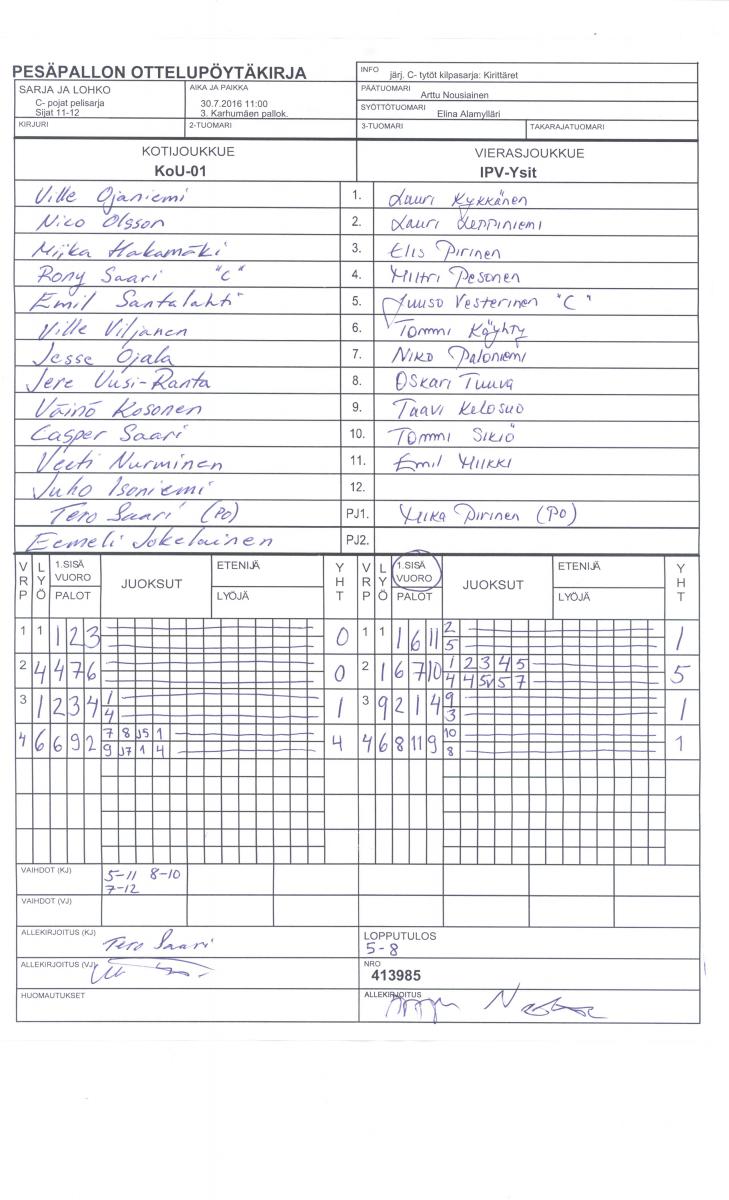 PESÄPALLON OTTELUPÖYTÄKIRJA
INFO järj. C- tytöt kilpasarja: Kirittäret
SARJA JA LOHKO
C- pojat pelisarja
Sijat 11-12
AIKA JA PAIKKA
30.7.2016 11:00
3. Karhumäen pallok.
PÄÄTUOMARI Arttu Nousiainen
SYÖTTÖTUOMARI Elina Alamylläri
KIRJURI 2-TUOMARI 3-TUOMARI TAKARAJATUOMARI
KOTIJOUKKUE VIERASJOUKKUE
KoU-01 IPV-Ysit
Ville Ojaniemi 1. Lauri Kykkänen
Nico Olsson 2. Lauri Leppiniemi
Miika Hakamäki 3. Elis Pirinen
Rony Saari "C" 4. Miitri Pesonen
Emil Santalahti 5. Juuso Vesterinen "C"
Ville Viljanen 6. Tommi Käyhty
Jesse Ojala 7. Niko Paloniemi
Jere Uusi-Ranta 8. Oskari Tuuva
Väinö Kosonen 9. Taavi Kelosuo
Casper Saari 10. Tommi Sikiö
Veeti Nurminen 11. Emil Miikki
Juho Isoniemi 12.
Tero Saari (PO) PJ1. Mika Pirinen (PO)
Eemeli Jokelainen PJ2.
VRP LYÖ 1.SISÄ VUORO PALOT JUOKSUT ETENIJÄ LYÖJÄ YHT VRP LYÖ 1.SISÄ VUORO PALOT JUOKSUT ETENIJÄ LYÖJÄ YHT
1 1 1 2 3 0 1 1 1 6 11 2 1
5
2 4 4 7 6 0 2 1 6 7 10 1 2 3 4 5 5
4 4 5V 5 7
3 1 2 3 4 1 1 3 9 2 1 4 9 1
4 3
4 6 6 9 2 7 8 J5 1 4 4 6 8 11 9 10 1
9 J7 1 4 8
VAIHDOT (KJ) 5-11 8-10
7-12
VAIHDOT (VJ)
ALLEKIRJOITUS (KJ) Tero Saari
LOPPUTULOS
5-8
ALLEKIRJOITUS (VJ)
NRO
413985
HUOMAUTUKSET
ALLEKIRJOITUS